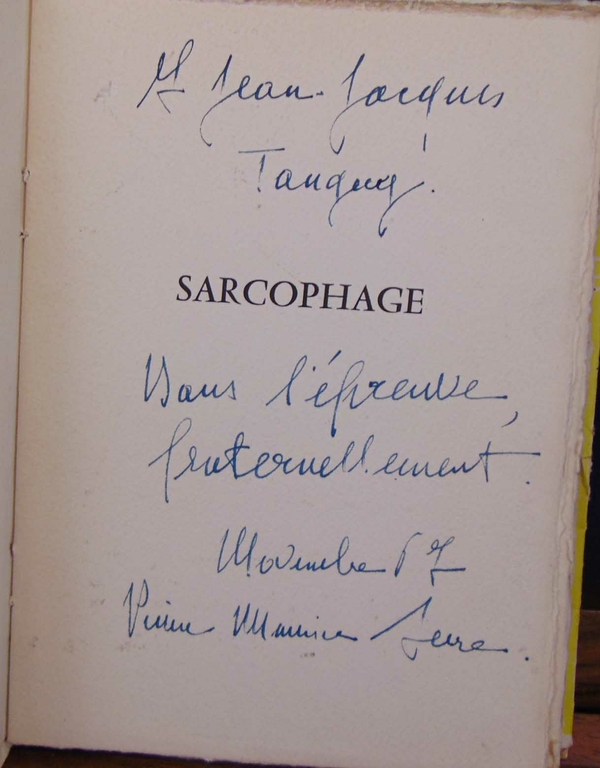 Jean-Jacques
Tanguy.
SARCOPHAGE
Dans l'épreuve,
fraternellement.
Novembre 67
Pierre Maurice